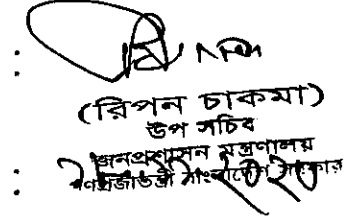 :
(রিপন চাকমা)
উপ সচিব
জনপ্রশাসন মন্ত্রণালয়
: গণপ্রজাতন্ত্রী বাংলাদেশ সরকার